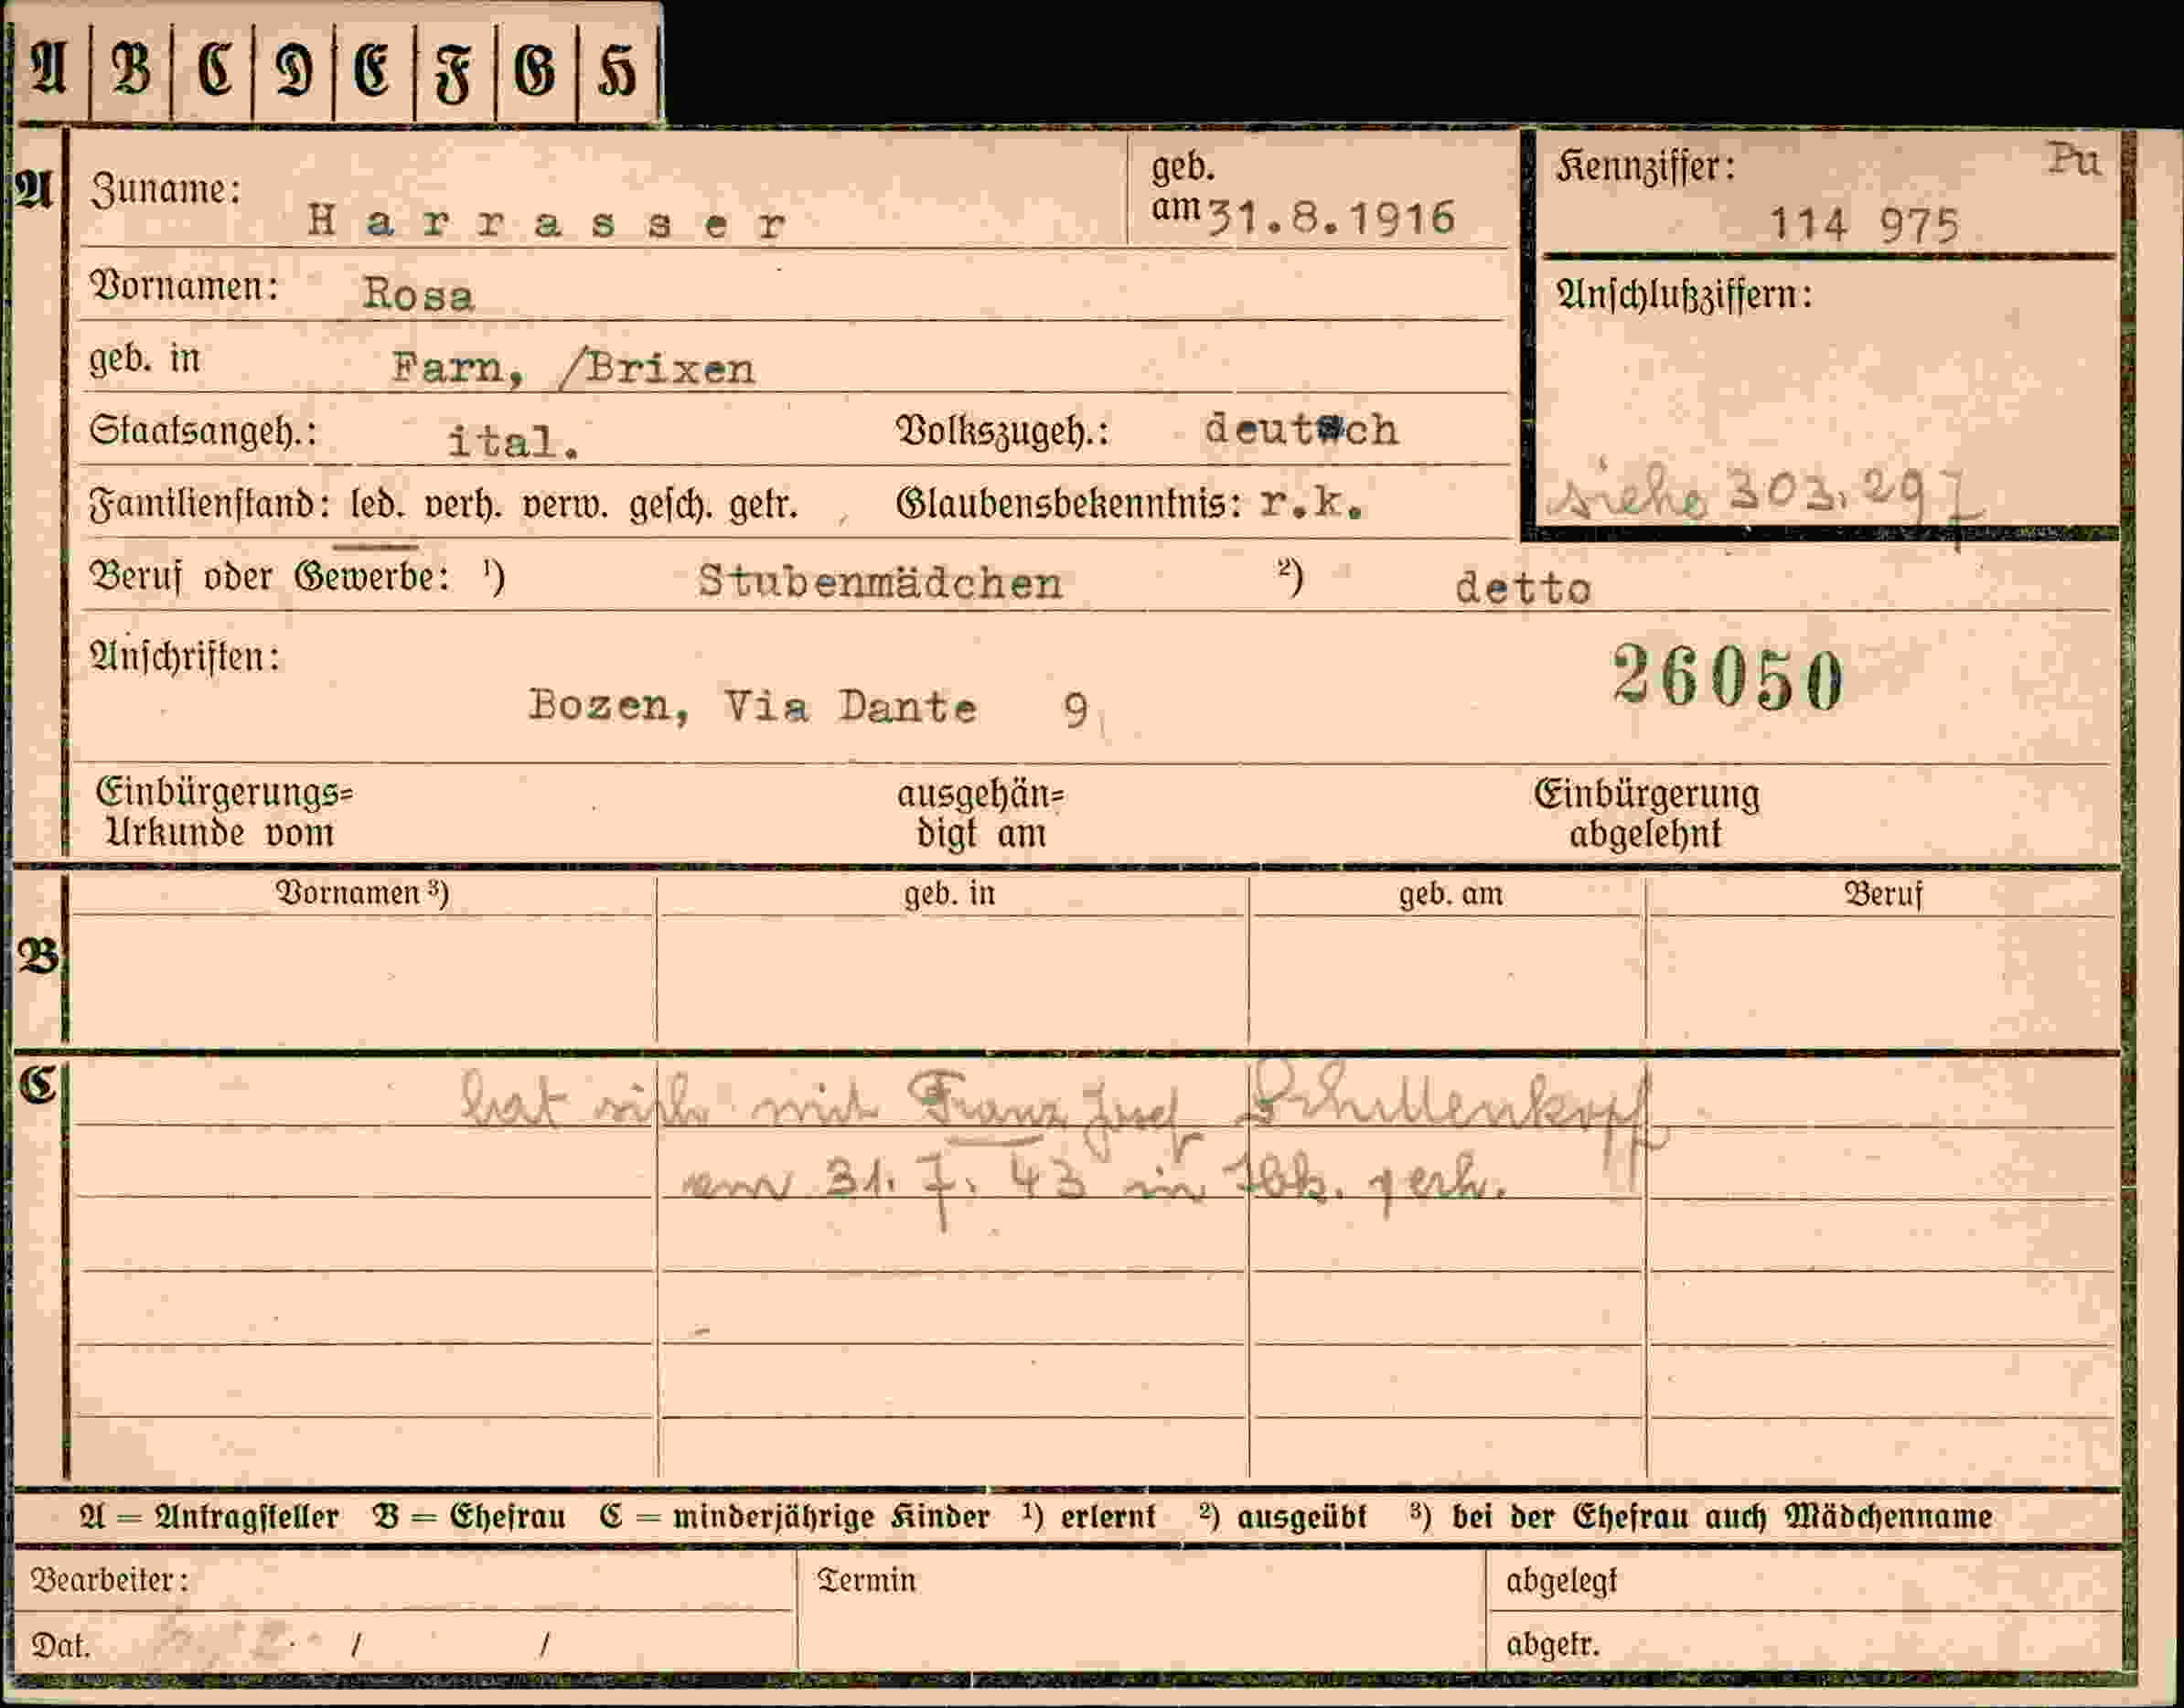 A B C D E F G H
A Zuname: Harrasser geb. am 31.8.1916 Kennziffer: 114 975 Pu
Vornamen: Rosa Anschlußziffern:
geb. in Farn, /Brixen
Staatsangeh.: ital. Volkszugeh.: deutsch
Familienstand: led. verh. verw. gesch. getr. Glaubensbekenntnis: r.k. siehe 303.297
Beruf oder Gewerbe: ¹) Stubenmädchen ²) detto
Anschriften: 26050
Bozen, Via Dante 9
Einbürgerungs= ausgehän= Einbürgerung
Urkunde vom digt am abgelehnt
Vornamen ³) geb. in geb. am Beruf
B
C hat sich mit Franz Josef Schullenkopf
am 31. 7. 43 in Ibk. verh.
A = Antragsteller B = Ehefrau C = minderjährige Kinder ¹) erlernt ²) ausgeübt ³) bei der Ehefrau auch Mädchenname
Bearbeiter: Termin abgelegt
Dat. / / abgetr.